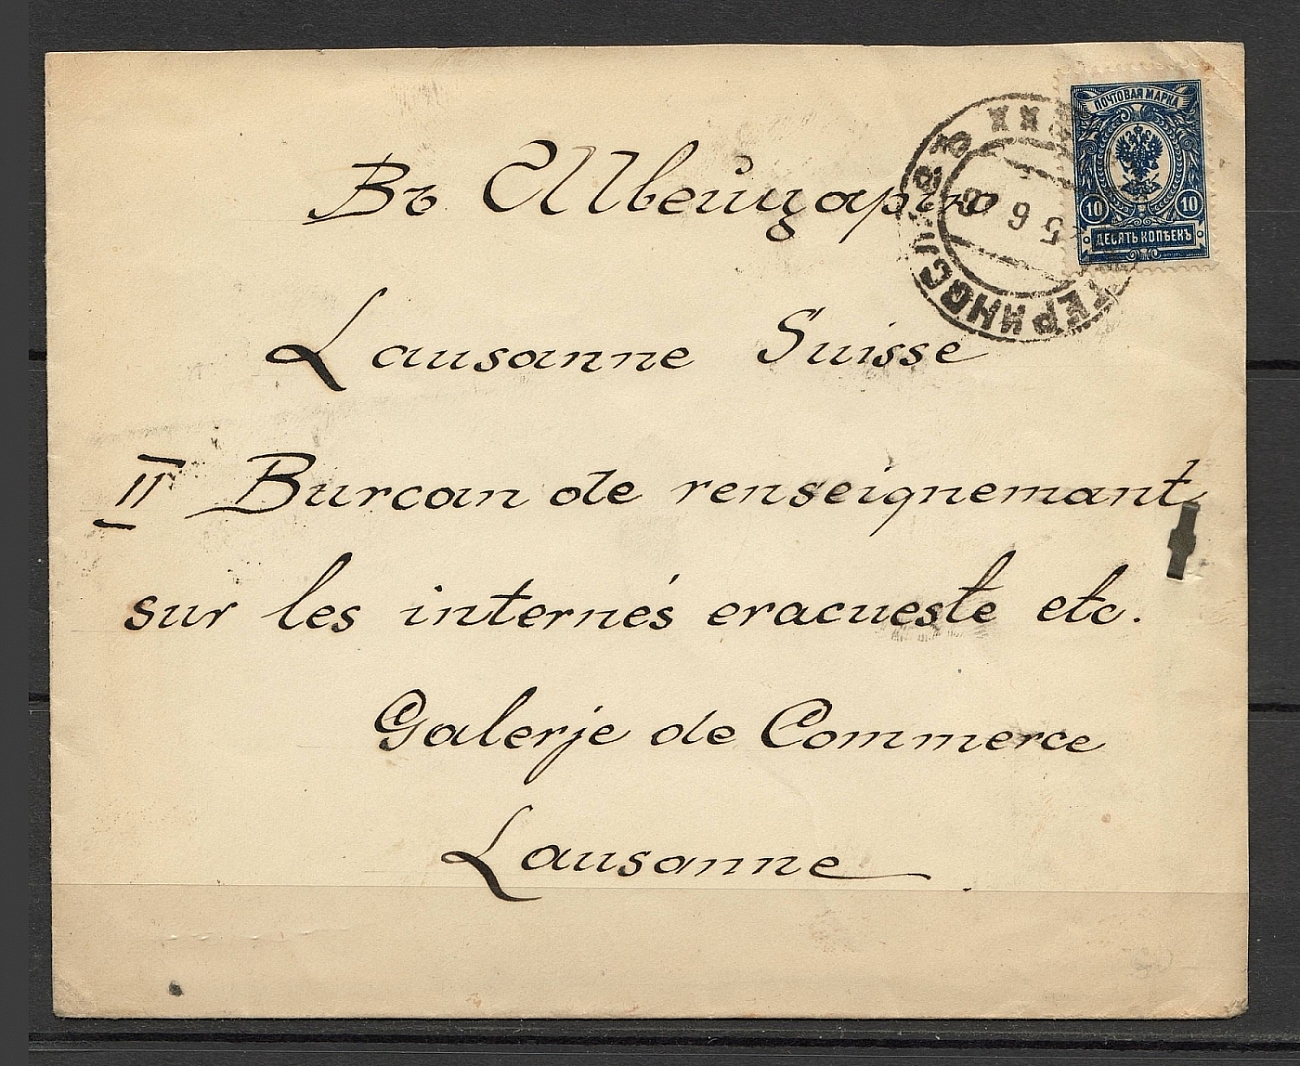 ПОЧТОВАЯ МАРКА
10 10
ДЕСЯТЬ КОПѢЕКЪ
5 6
Въ Швейцарію
Lausanne Suisse
II Burcan de renseignemant
sur les internés eracueste etc.
Galerje de Commerce
Lausanne